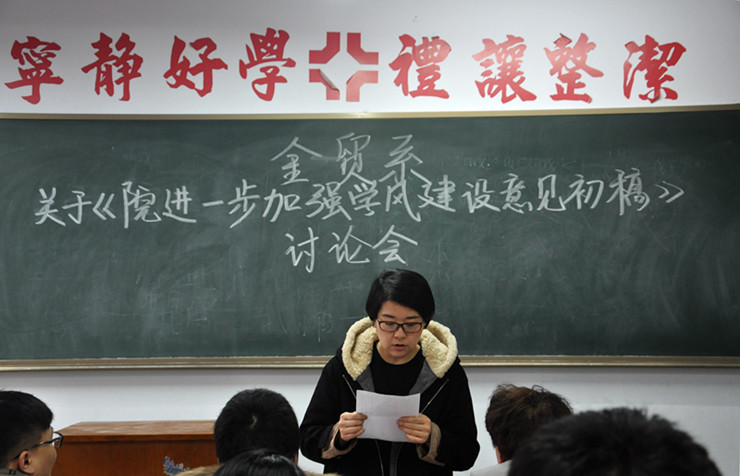 寧靜好學 禮讓整潔
金贸系
关于《院进一步加强学风建设意见初稿》
讨论会